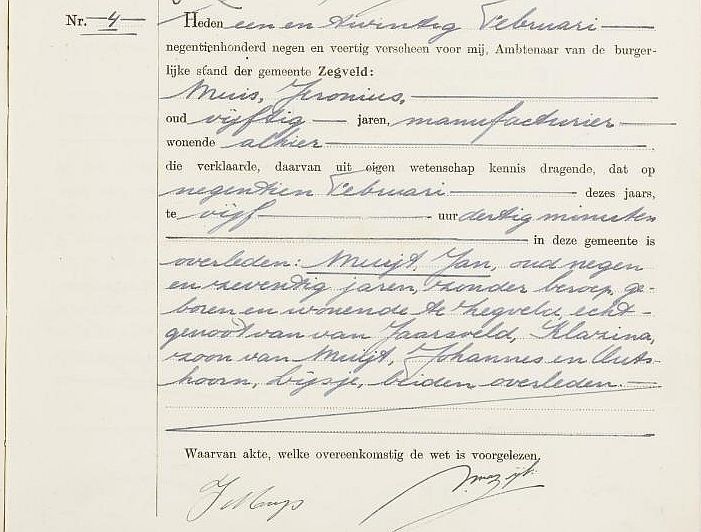 Nr. 4
Heden een en twintig Februari
negentienhonderd negen en veertig verscheen voor mij, Ambtenaar van de burger-
lijke stand der gemeente Zegveld:
Muis, Jeronius,
oud vijftig jaren, manufacturier
wonende alhier
die verklaarde, daarvan uit eigen wetenschap kennis dragende, dat op
negentien Februari dezes jaars,
te vijf uur dertig minuten
in deze gemeente is
overleden: Muijt, Jan, oud negen
en zeventig jaren, zonder beroep, ge-
boren en wonende te Zegveld, echt-
genoot van van Jaarsveld, Klazina,
zoon van Muijt, Johannes en Outs-
hoorn, Lijsje, beiden overleden.
Waarvan akte, welke overeenkomstig de wet is voorgelezen.